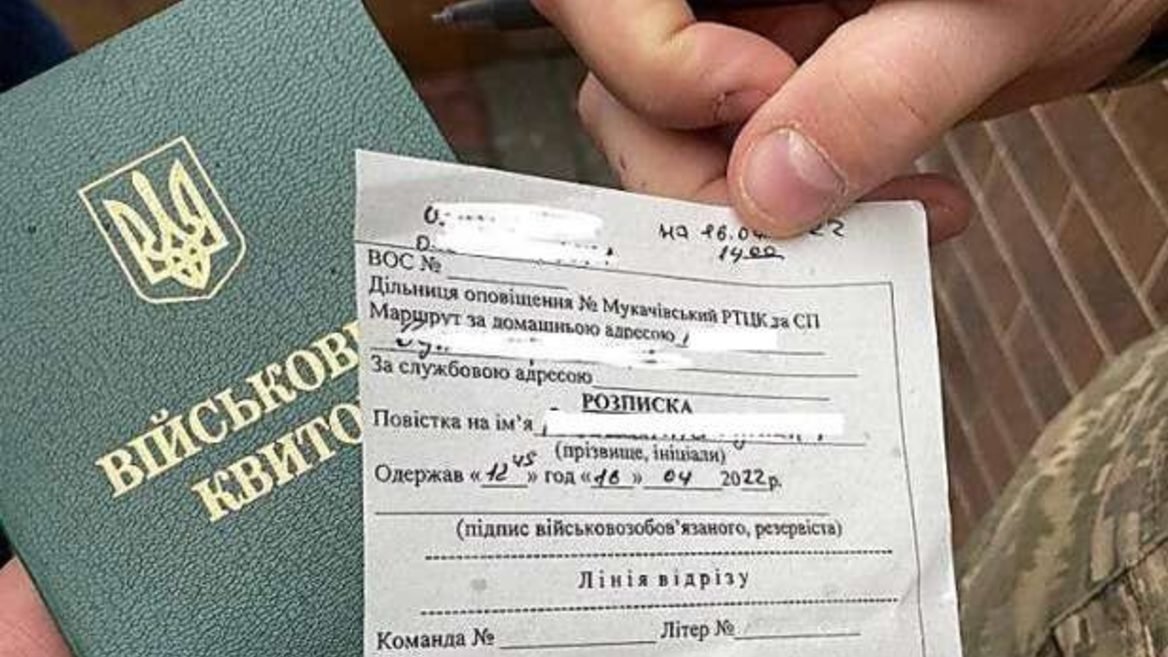 ВІЙСЬКОВ
КВИТО
на 16.04 22
14 00
ВОС №
Дільниця оповіщення № Мукачівський РТЦК та СП
Маршрут за домашньою адресою
За службовою адресою
РОЗПИСКА
Повістка на ім'я
(прізвище, ініціали)
Одержав «12 45» год «16» 04 2022 р.
(підпис військовозобов'язаного, резервіста)
Лінія відрізу
Команда № Літер №